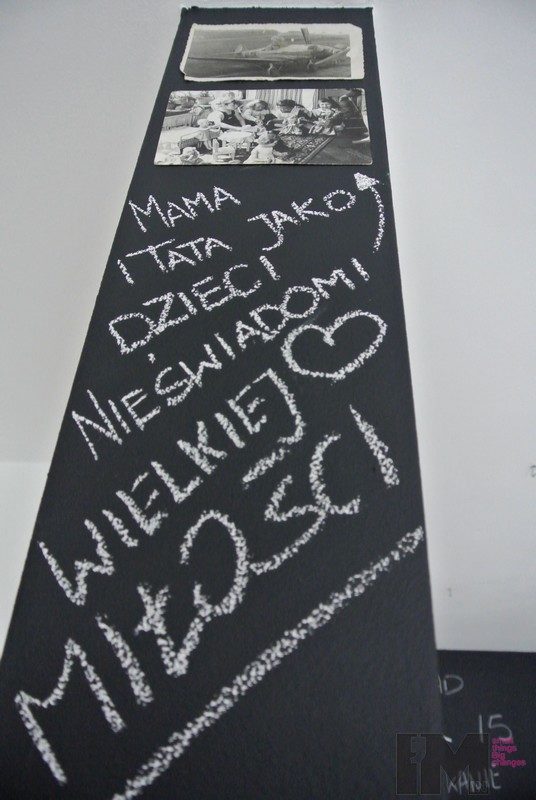 MAMA
I TATA JAKO
DZIECI
NIEŚWIADOMI
WIELKIEJ
MIŁOŚCI
15
small
things
Big
changes